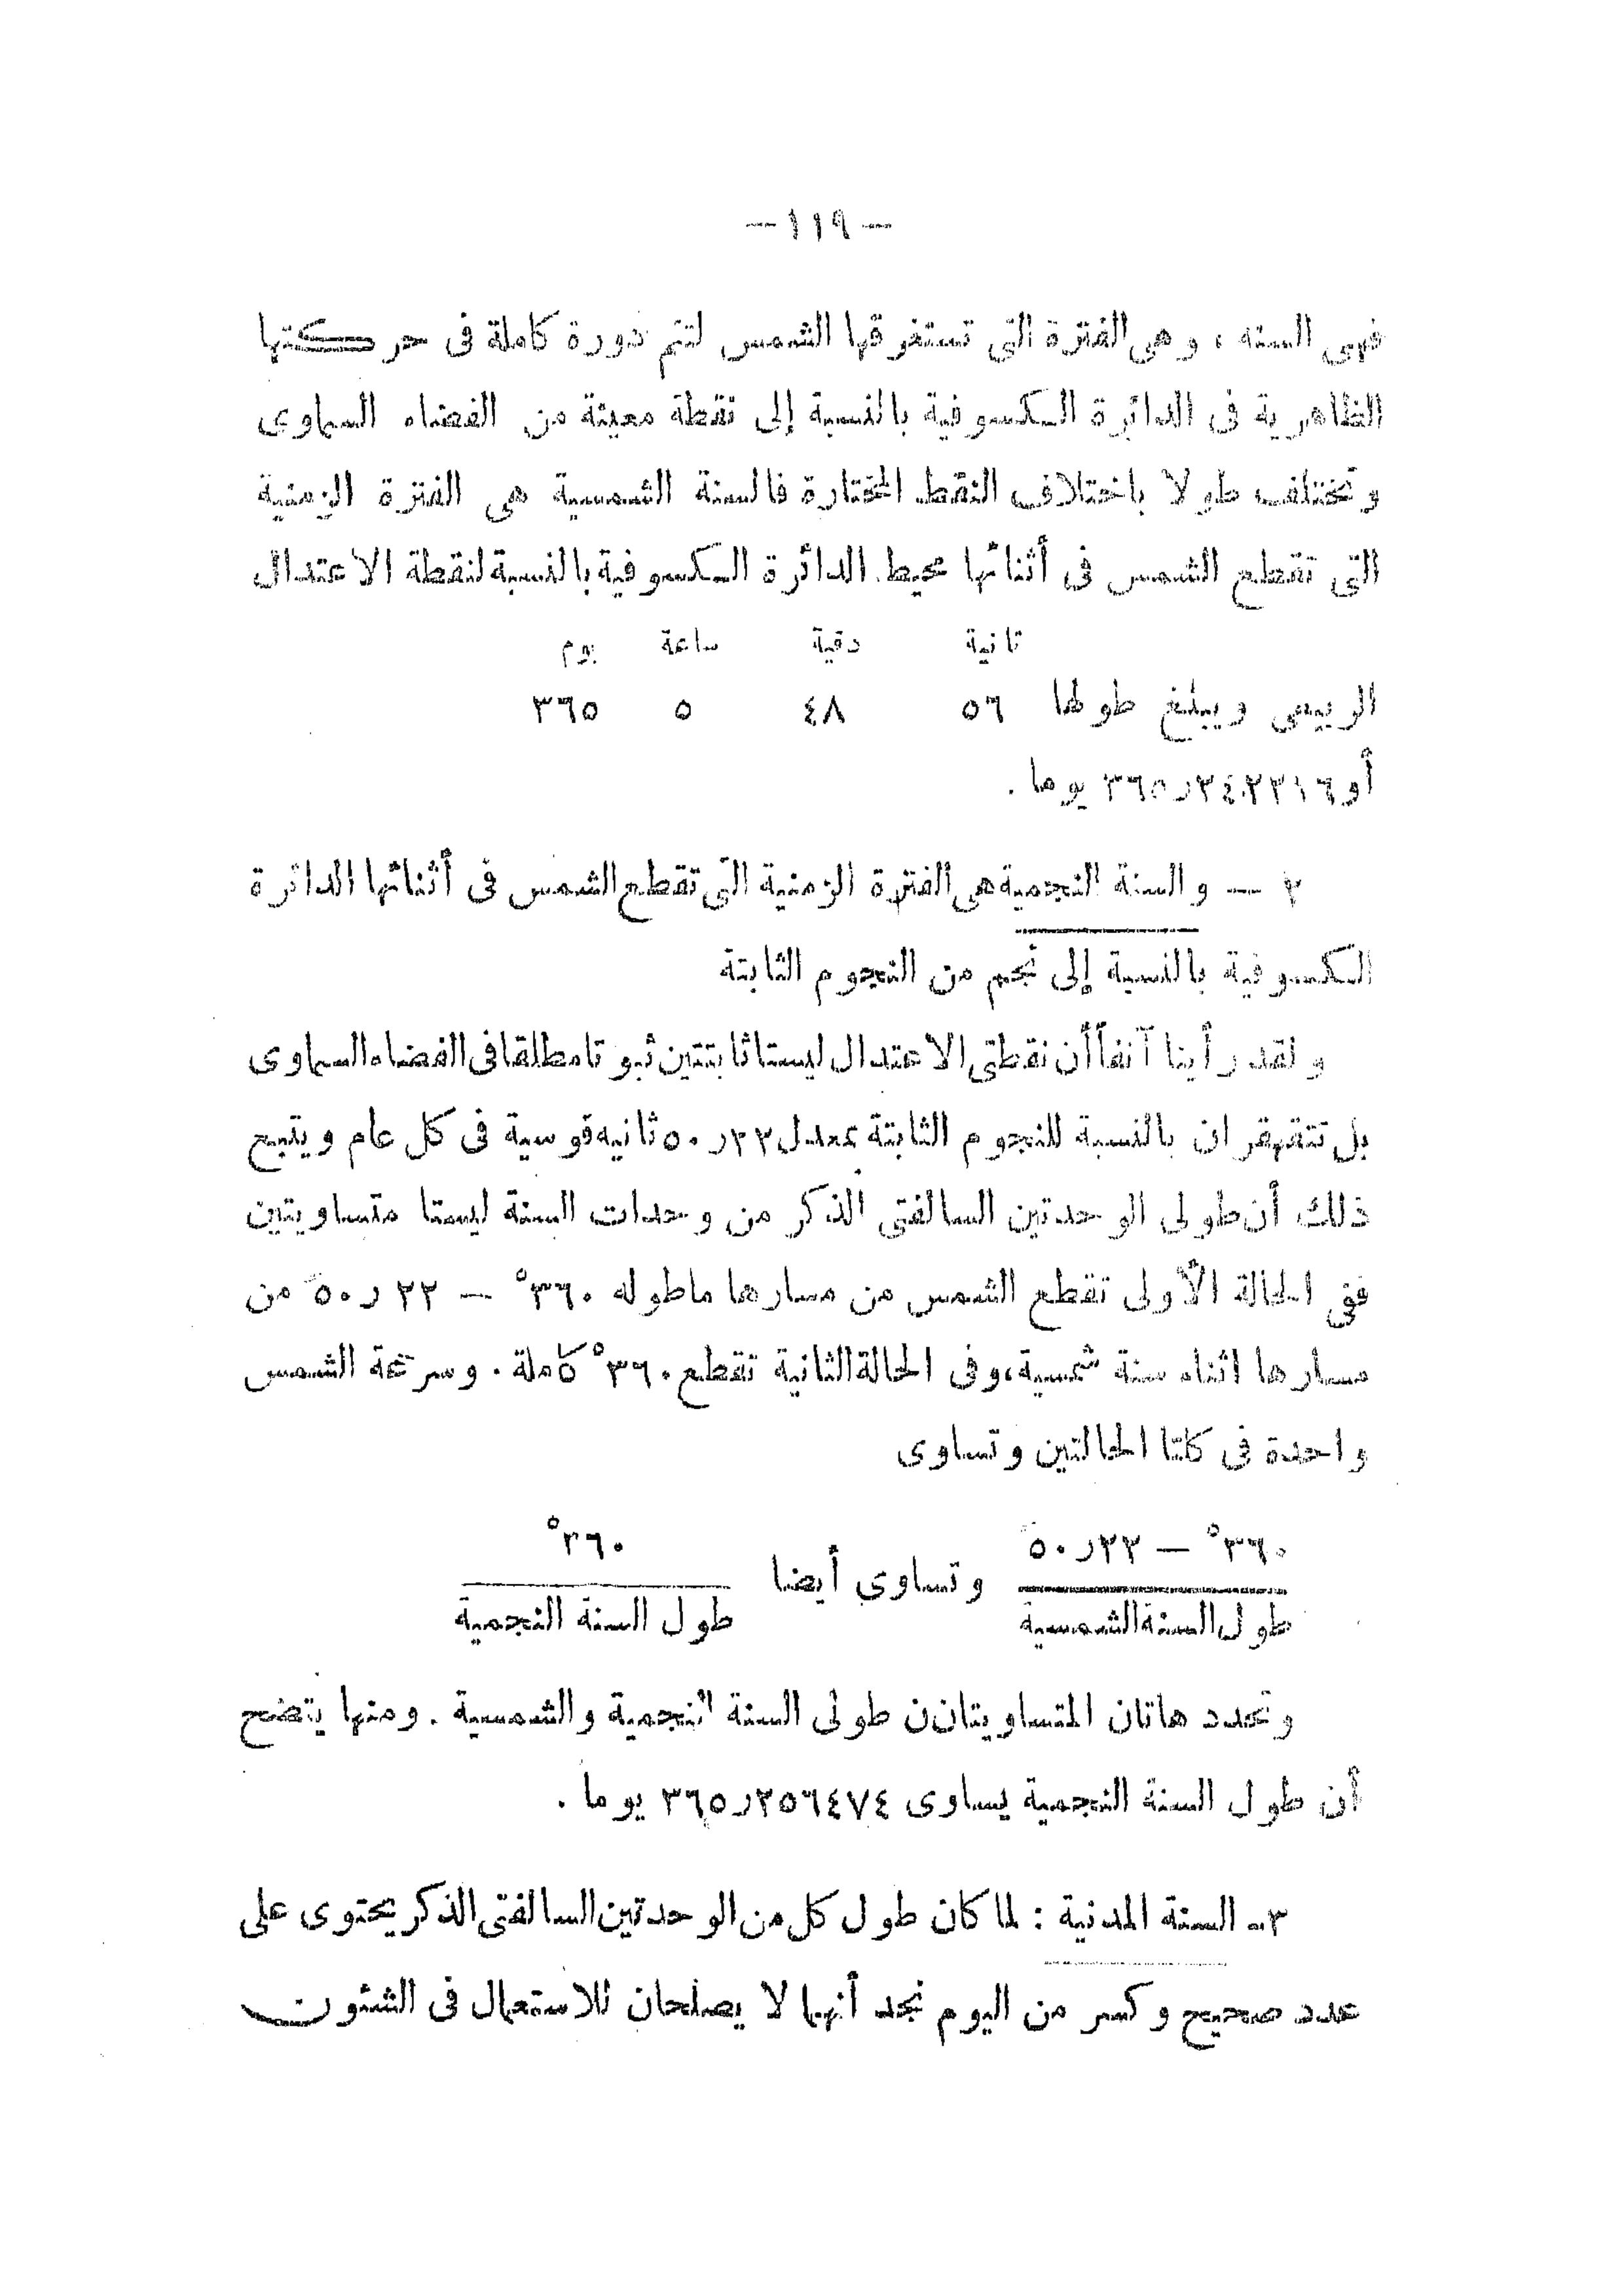 — ١١٩ —
فهى السنه ، وهى الفترة التى تستغرقها الشمس لتتم دورة كاملة فى حركتها
الظاهرية فى الدائرة الكسوفية بالنسبة إلى نقطة معينة من الفضاء السماوى
وتختلف طولا باختلاف النقط المختارة فالسنة الشمسية هى الفترة الزمنية
التى تقطع الشمس فى أثنائها محيط الدائرة الكسوفية بالنسبة لنقطة الاعتدال
ثانية دقية ساعة يوم
الربيعى ويبلغ طولها ٥٦ ٤٨ ٥ ٣٦٥
أو ٣٦٥٫٢٤٢٢١٦ يوما .
٢ — والسنة النجمية هى الفترة الزمنية التى تقطع الشمس فى أثنائها الدائرة
الكسوفية بالنسبة إلى نجم من النجوم الثابتة
ولقد رأينا آنفاً أن نقطتى الاعتدال ليستا ثابتتين ثبوتا مطلقا فى الفضاء السماوى
بل تتقهقران بالنسبة للنجوم الثابتة بمعدل ٥٠٫٢٢ ثانيه قوسية فى كل عام ويتبع
ذلك أن طولى الوحدتين السالفتى الذكر من وحدات السنة ليستا متساويتين
ففى الحالة الأولى تقطع الشمس من مسارها ماطوله ٣٦٠° — ٥٠٫٢٢ من
مسارها اثناء سنة شمسية، وفى الحالة الثانية تقطع ٣٦٠° كاملة . وسرعة الشمس
واحدة فى كلتا الحالتين وتساوى
٣٦٠° — ٥٠٫٢٢
طول السنة الشمسية
وتساوى أيضا
٣٦٠°
طول السنة النجمية
وتحدد هاتان المتساويتان ن طولى السنة النجمية والشمسية . ومنها يتضح
أن طول السنة النجمية يساوى ٣٦٥٫٢٥٦٤٧٤ يوما .
٣- السنة المدنية : لما كان طول كل من الوحدتين السالفتى الذكر يحتوى على
عدد صحيح وكسر من اليوم نجد أنهما لا يصلحان للاستعمال فى الشئون